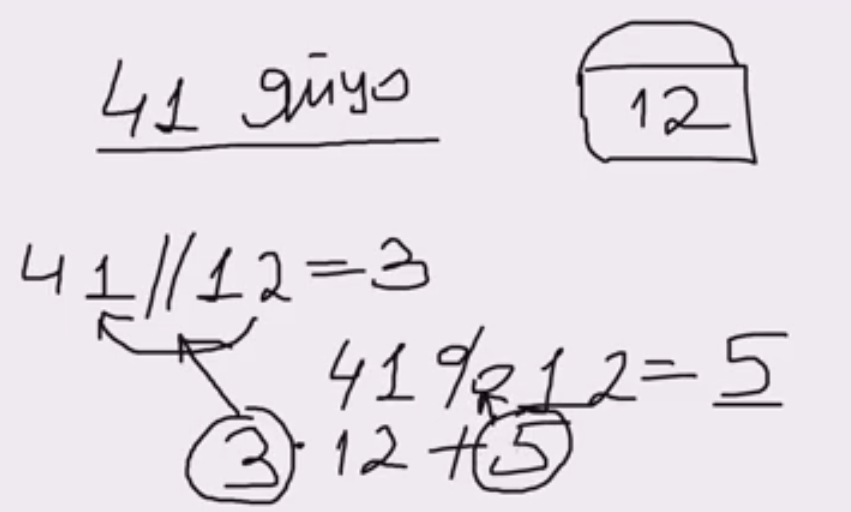 41 яйцо
12
41//12=3
41%12=5
3·12+5